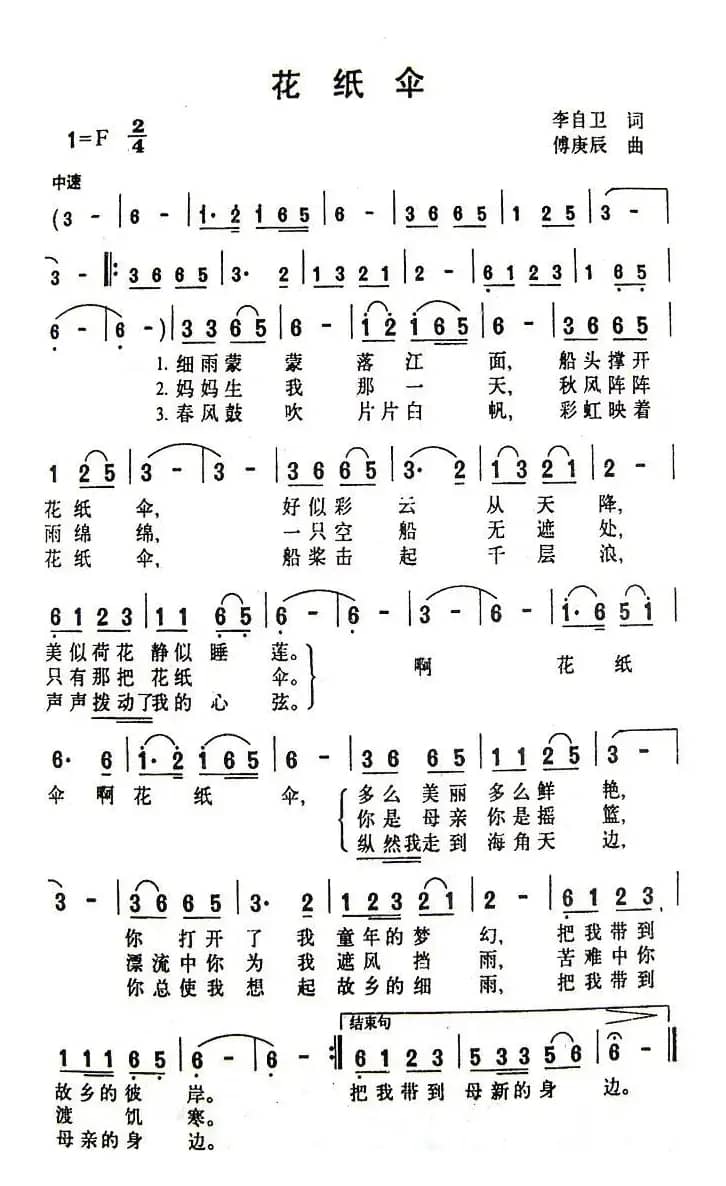 花纸伞
1=F 2/4
李自卫 词
傅庚辰 曲
中速
(3 - | 6 - | 1·2 165 | 6 - | 3665 | 1 25 | 3 - |
3 - |: 3665 | 3· 2 | 1321 | 2 - | 6123 | 1 65 |
6 - | 6 - ) | 3365 | 6 - | 12 165 | 6 - | 3665 |
1.细雨蒙 蒙 落 江 面, 船头撑开
2.妈妈生 我 那 一 天, 秋风阵阵
3.春风鼓 吹 片片白 帆, 彩虹映着
1 25 | 3 - | 3 - | 3665 | 3· 2 | 1321 | 2 - |
花纸 伞, 好似彩 云 从 天 降,
雨绵 绵, 一只空 船 无 遮 处,
花纸 伞, 船桨击 起 千 层 浪,
6123 | 11 65 | 6 - | 6 - | 3 - | 6 - | 1·6 51 |
美似荷花 静似 睡 莲。 啊 花 纸
只有那把 花纸 伞。
声声拨动了我的 心 弦。
6· 6 | 1·2 165 | 6 - | 36 65 | 11 25 | 3 - |
伞 啊 花 纸 伞, 多么 美丽 多么鲜 艳,
你是 母亲 你是摇 篮,
纵然我走到 海角天 边,
3 - | 3665 | 3· 2 | 123 21 | 2 - | 6123 |
你 打开 了 我 童年的 梦 幻, 把我带到
漂流中你 为 我 遮风 挡 雨, 苦难中你
你总使我 想 起 故乡的 细 雨, 把我带到
结束句
111 65 | 6 - | 6 - :| 6123 | 533 56 | 6 - |
故乡的彼 岸。 把我带到 母新的身 边。
渡 饥 寒。
母亲的身 边。